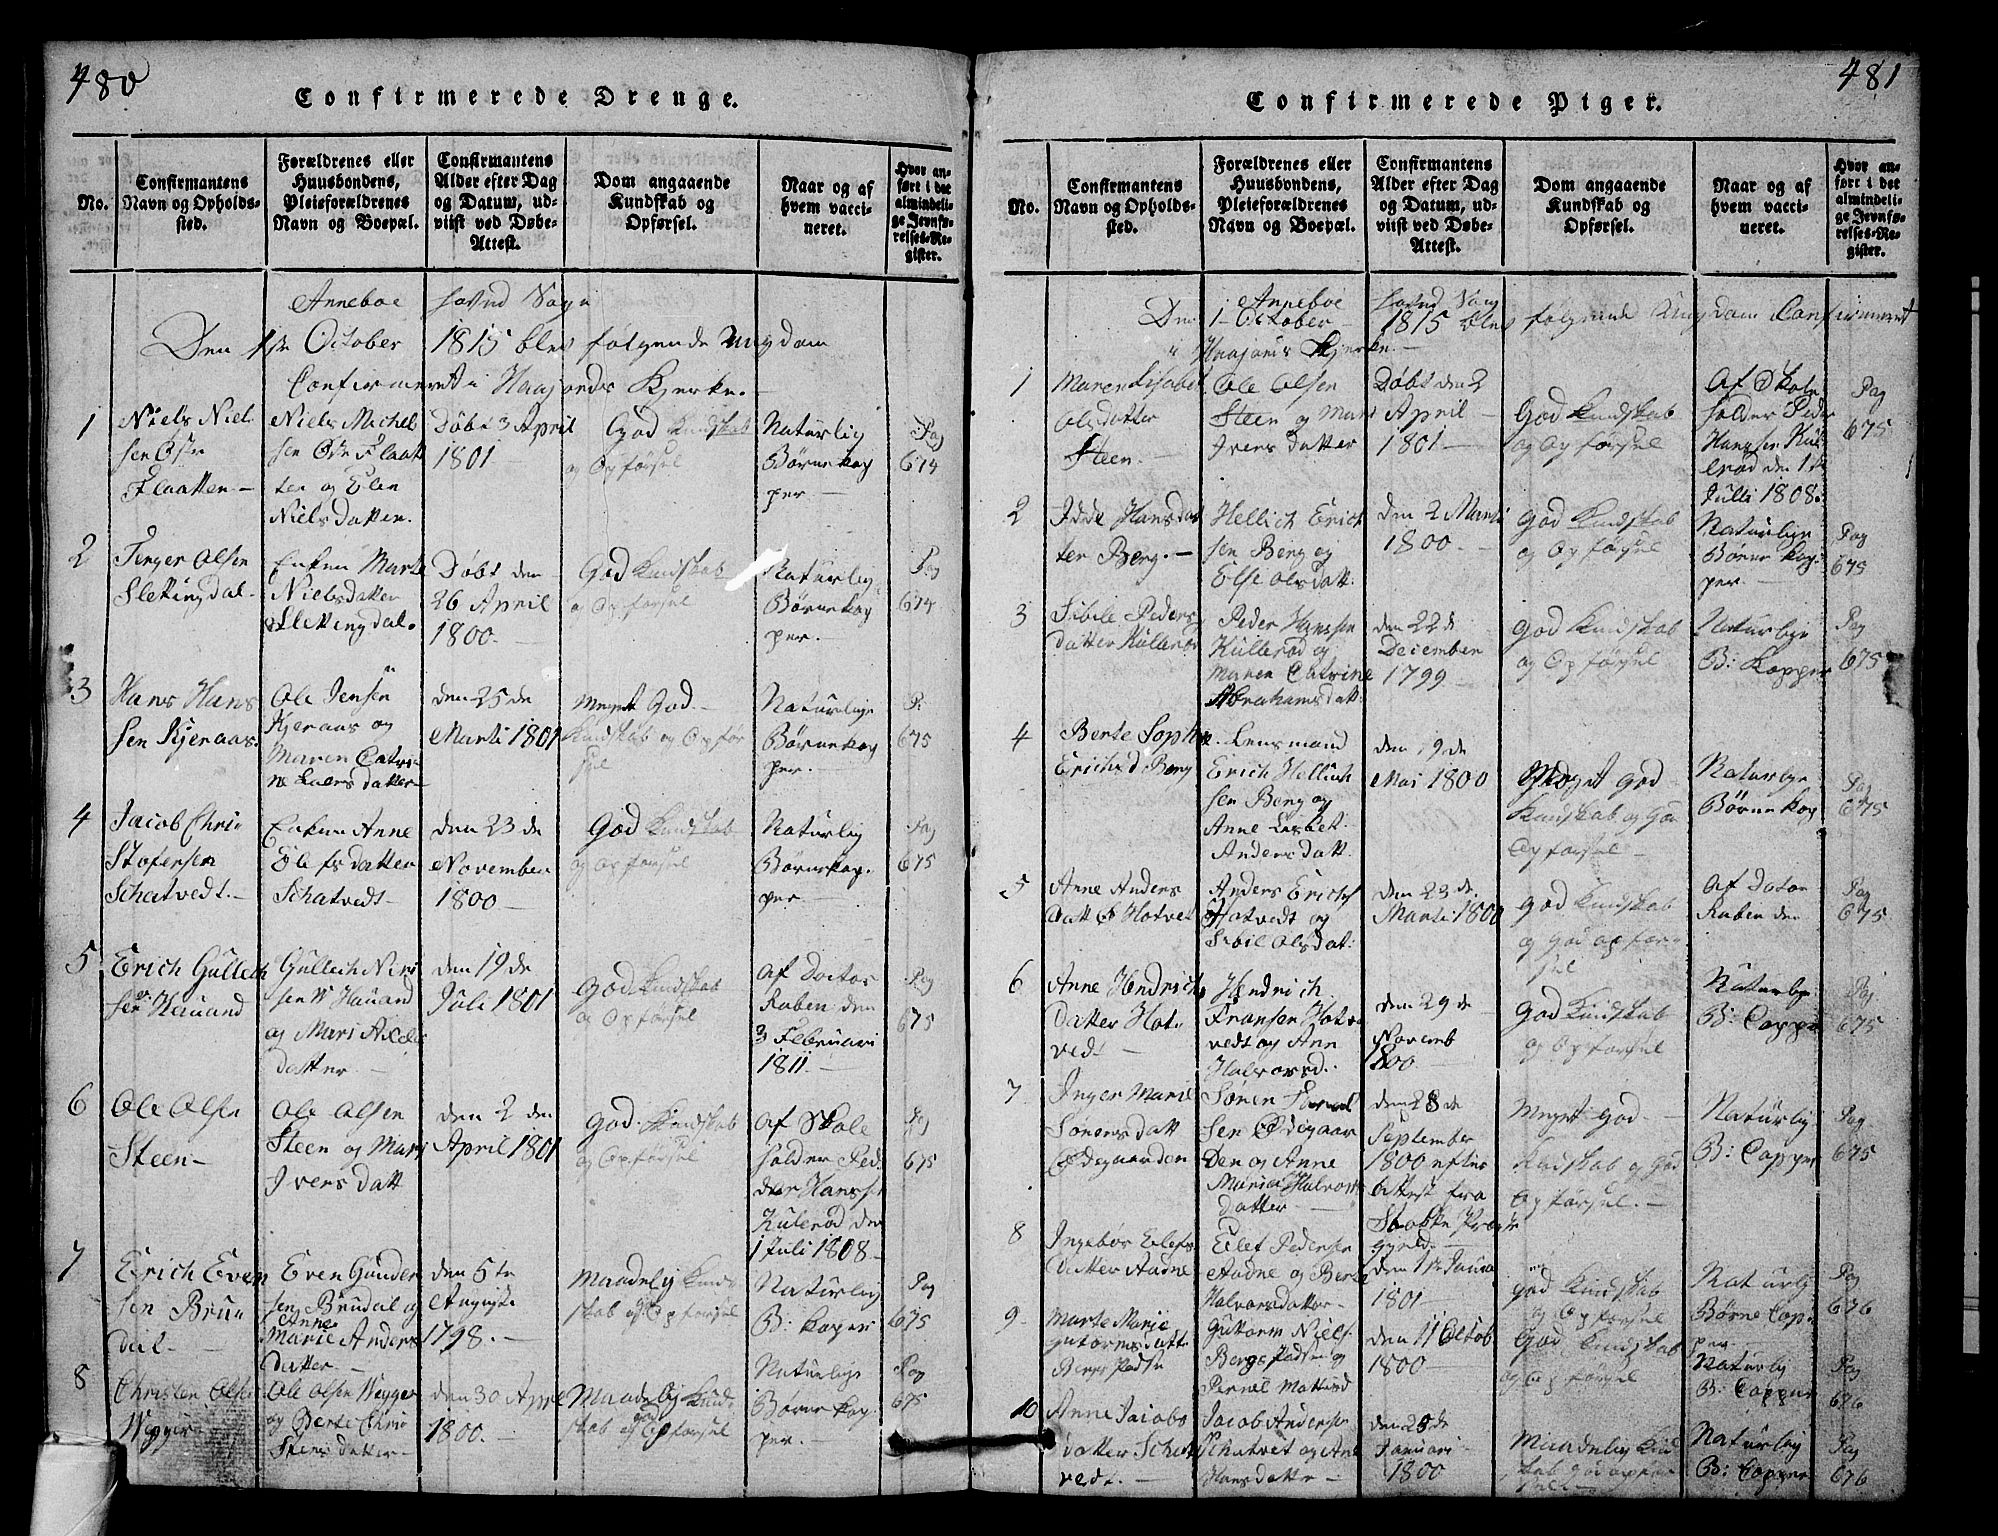 480
Confirmerede Drenge.
No.
Confirmantens
Navn og Opholds-
sted.
Forældrenes eller
Huusbondens,
Pleieforældrenes
Navn og Boepæl.
Confirmantens
Alder efter Dag
og Datum, ud-
viist ved Døbe-
Attest.
Dom angaaende
Kundskab og
Opførsel.
Naar og af
hvem vacci-
neret.
Hvor an-
ført i det
almindeli-
ge Jevnfø-
relses-Re-
gister.
Anneboe Sogn
Den 1te October 1815 blev følgende Ungdom
Confirmeret i Kjerke.
1
Niels Niel
sen
Flaatten
Niels Michel
sen Flaat
ten og Elen
Nielsdatter.
Døbt 3 April
1801
God Kundskab
og Opførsel
Naturlig
Børnekop
per.
Pag
674
2
Olsen
Slettingdal.
Enken Marte
Nielsdatter
Slettingdal.
Døbt den
26 April
1800.
God Kundskab
og Opførsel
Naturlig
Børnekop
per.
Pag
674
3
Hans Hans
sen Kjeraas.
Ole Jensen
Kjeraas og
Maren Catri
ne Larsdatter
den 25 de
Marti 1801
Meget God
Kundskab og Opfør
sel
Naturlige
Børnekop
per.
P.
675
4
Jacob Chri
Stofersen
Schatvedt.
Enken Anne
Olefsdatter
Schatvedt
den 23 de
November
1800
God Kundskab
og Opførsel
Naturlig
Børnekop.
per
Pag
675
5
Erich Gullech
sen Hauand
Gullech
sen Hauand
og Mari
datter
den 19 de
Juli 1801
God Kundskab
og Opførsel
Af Doctor
Ruben den
3 Februari
1811
Pag
675
6
Ole Olsen
Steen
Ole Olsen
Steen og Mari
Iversdatt
den 2 den
April 1801
God Kundskab
og Opførsel
Af Skole
holder Ped
der Hanssen
Kulerød den
1 Juli 1808
Pag
675
7
Erich Even
sen Bru
dal
Even Gunder
sen Brudal og
Anne
Marie Anders
datter
den 5te
Auguste
1798.
Maadelig Kund
skab og God Opførsel
Naturlig
B: Koper
Pag
675
8
Christen Olsen
Wegger
Ole Olsen Wegger
og Berte Chri
Stensdatter
den 30 April
1800.
Maadelig Kund
skab og God Opførsel
Naturlige
Børnekop
per.
Pag
675
481
Confirmerede Piger.
No.
Confirmantens
Navn og Opholds-
sted.
Forældrenes eller
Huusbondens,
Pleieforældrenes
Navn og Boepæl.
Confirmantens
Alder efter Dag
og Datum, ud-
viist ved Døbe-
Attest.
Dom angaaende
Kundskab og
Opførsel.
Naar og af
hvem vacci-
neret.
Hvor an-
ført i det
almindeli-
ge Jevnfø-
relses-Re-
gister.
Anneboe Sogn
Den 1 October 1815 blev følgende Ungdom Confirmeret
i Kjerke.
1
Maren Lisabet
Olsdatter
Steen.
Ole Olsen
Steen og Mari
Iversdatter
Døbt den 2
April
1801
God Kundskab
og Opførsel
Af Skole
holder Peder
Hanssen Kul
lerød den 1 de
Julli 1808.
Pag
675
2
Idde Hansdat
ter Berg.
Hellich Erich
sen Berg og
Else Olsdatt.
den 2 Marti
1800.
God Kundskab
og Opførsel
Naturlige
Børnekop
per
Pag
675
3
Sibile Peders
datter Kullerød
Peder Hanssen
Kullerød og
Maren Catrine
Abrahamsdatt.
den 22 de
December
1799
God Kundskab
og Opførsel
Naturlige
B: Kopper
Pag
675
4
Berte Sophie
Erichsd Berg
Lensmand
Erich Hellich
sen Berg og
Anne Lisbet
Andersdatt.
den 19 de
Mai 1800
Meget God
Kundskab og God
Opførsel
Naturlige
Børnekop
Pag
675
5
Anne Anders
datt Hotvet
Anders Erichs
Hotvedt og
Sibil Olsdat:
den 23 de
Marti 1800
God Kundskab
og God Opfør
sel
Af Doctor
Ruben den
Pag
675
6
Anne Hendrichs
datter Hot
vedt
Hendrich
Fransen Hot
vedt og Ann
Halvorsd.
den 29 de
Novemb
1800
God Kundskab
og Opførsel
Naturlige
B: Copper
Pag
675
7
Inger Marie
Sørensdatt
Ødegaarden
Søren
sen Ødegaar
den og Anne
Maria Halvors
datter
den 28 de
September
1800 efter
Attest fra
Stokke Præste
gjeld.
Meget God
Kundskab og God
Opførsel.
Naturlig
B: Copper
Pag
675
8
Ingebør Elefs
datter Aadne
Elef Pedersen
Aadne og Berte
Halvorsdatter
den 1te Janua
1801
God Kundskab
og Opførsel
Naturlig
Børne Cop
per
Pag
676
9
Marte Marie
Gutormsdatt
Guttorm Niels
og
den 11 Octob
1800
God Kundskab
og Opførsel
Naturlig
B: Copper
Pag
676
10
Anne Jacobs
datter Schat
vedt.
Jacob Andersen
Schatvet og Ane
Hansdatter
den 25 de
Januari
1800
Maadelig Kund
skab God Opfør
sel
Naturlig
B: Copper
Pag
676